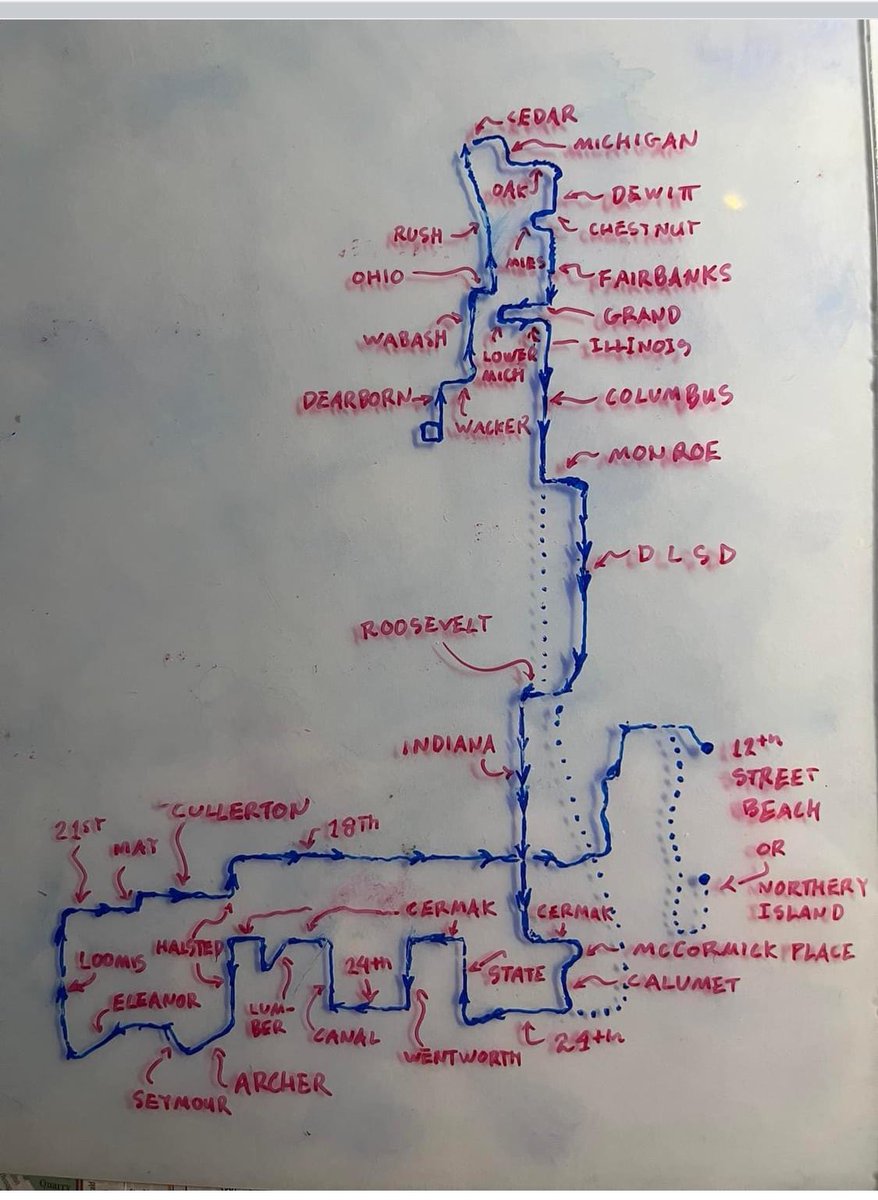 CEDAR
MICHIGAN
OAK
DEWITT
CHESTNUT
RUSH
MIES
FAIRBANKS
OHIO
GRAND
WABASH
LOWER
MICH
ILLINOIS
DEARBORN
WACKER
COLUMBUS
MONROE
DLSD
ROOSEVELT
INDIANA
12th
STREET
BEACH
OR
NORTHERY
ISLAND
CULLERTON
21ST
MAY
18Th
CERMAK
CERMAK
HALSTED
MCCORMICK PLACE
LOOMIS
24th
STATE
CALUMET
ELEANOR
LUM-
BER
CANAL
WENTWORTH
24th
ARCHER
SEYMOUR
Quarry